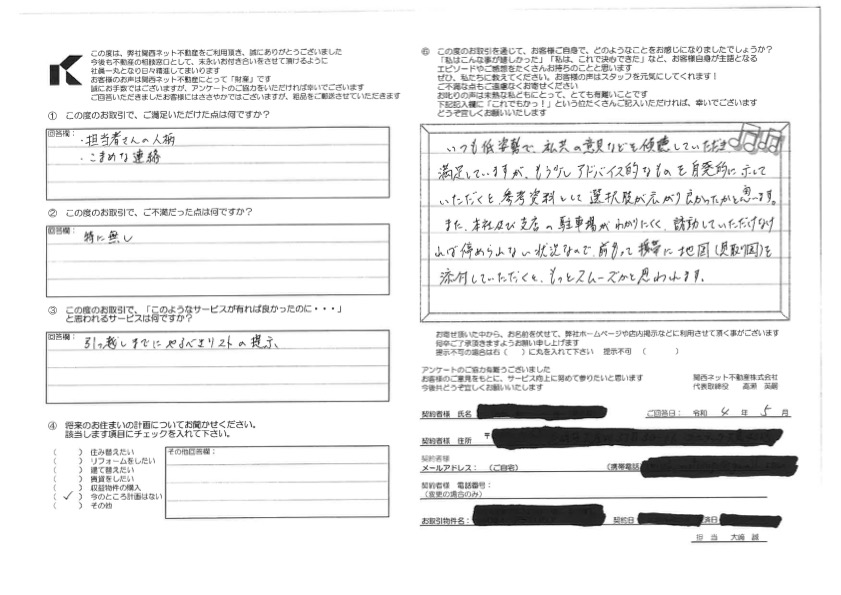 この度は、弊社関西ネット不動産をご利用頂き、誠にありがとうございました
今後も不動産の相談窓口として、末永いお付き合いをさせて頂けるように
社員一丸となり日々精進してまいります
お客様のお声は関西ネット不動産にとって「財産」です
誠にお手数ではございますが、アンケートのご協力をいただければ幸いでございます
ご回答いただきましたお客様にはささやかではございますが、粗品をご郵送させていただきます
① この度のお取引で、ご満足いただけた点は何ですか?
回答欄:
・担当者さんの人柄
・こまめな連絡
② この度のお取引で、ご不満だった点は何ですか?
回答欄:
特に無し
③ この度のお取引で、「このようなサービスが有れば良かったのに・・・」
と思われるサービスは何ですか?
回答欄:
引っ越しまでにやるべきリストの提示、
④ 将来のお住まいの計画についてお聞かせください。
該当します項目にチェックを入れて下さい。
( ) 住み替えたい
( ) リフォームをしたい
( ) 建て替えたい
( ) 賃貸をしたい
( ) 収益物件の購入
( ✓ ) 今のところ計画はない
( ) その他
その他回答欄:
⑥ この度のお取引を通じて、お客様ご自身で、どのようなことをお感じになりましたでしょうか?
「私はこんな事が嬉しかった」「私は、これで決心できた」など、お客様自身が主語となる
エピソードやご感想をたくさんお持ちのことと思います
ぜひ、私たちに教えてください。お客様の声はスタッフを元気にしてくれます!
ご不満な点もご遠慮なくお寄せください
お叱りの声は未熟な私どもにとって、とても有難いことです
下記記入欄に「これでもかっ!」という位たくさんご記入いただければ、幸いでございます
どうぞ宜しくお願いいたします
いつも低姿勢で、私共の意見などを傾聴していただき
満足していますが、もう少しアドバイス的なものを自発的に示して
いただくと参考資料として選択肢が広がり良かったかと思います。
また、本社及び支店の駐車場がわかりにくく、誘動していただけなけ
れば停められない状況なので、前もって携帯に地図(見取り図)を
添付していただくと、もっとスムーズかと思われます。
お寄せ頂いた中から、お名前を伏せて、弊社ホームページや店内掲示などに利用させて頂く事がございます
何卒ご了承頂きますようお願い申し上げます
掲示不可の場合は右( )に丸を入れて下さい 掲示不可 ( )
アンケートのご協力有難うございました
お客様のご意見をもとに、サービス向上に努めて参りたいと思います
今後共どうぞ宜しくお願いいたします
関西ネット不動産株式会社
代表取締役 高瀬 英嗣
契約者様 氏名
ご回答日: 令和 4 年 5 月
契約者様 住所 〒
契約者様
メールアドレス: (ご自宅)
(携帯電話)
契約者様 電話番号:
(変更の場合のみ)
お取引物件名:
契約日
済日
担 当 大嶋 誠